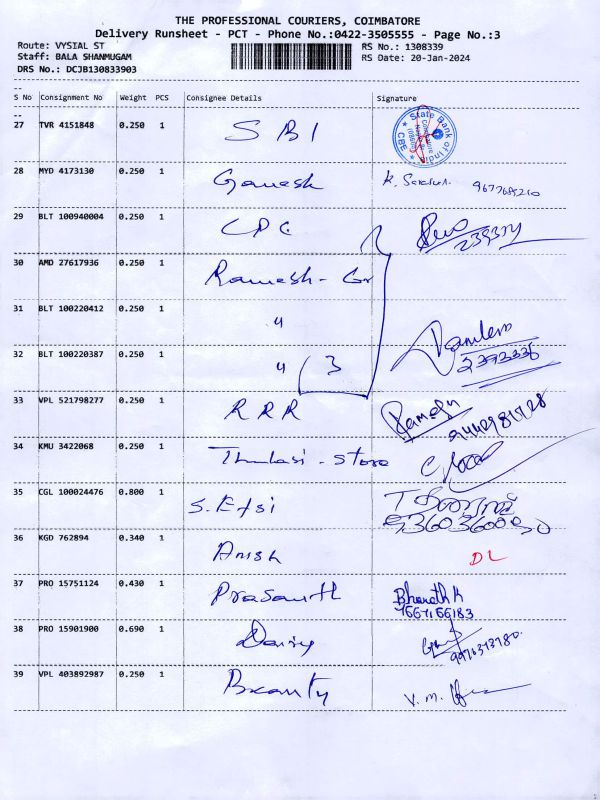 THE PROFESSIONAL COURIERS, COIMBATORE
Delivery Runsheet - PCT - Phone No.:0422-3505555 - Page No.:3
Route: VYSIAL ST RS No.: 1308339
Staff: BALA SHANMUGAM RS Date: 20-Jan-2024
DRS No.: DCJB130833903
S No Consignment No Weight PCS Consignee Details Signature
27 TVR 4151848 0.250 1 SBI State Bank of India CBE
28 MYD 4173130 0.250 1 Ganesh K.
29 BLT 100940004 0.250 1 CPC
30 AMD 27617936 0.250 1 Ramesh - Gr
31 BLT 100220412 0.250 1 "
32 BLT 100220387 0.250 1 " 3
33 VPL 521798277 0.250 1 RRR Ramesh
34 KMU 3422068 0.250 1 Thulasi - Store
35 CGL 100024476 0.800 1 S.
36 KGD 762894 0.340 1 Anish DL
37 PRO 15751124 0.430 1 Prasanth Bharath K
38 PRO 15901900 0.690 1 Daisy
39 VPL 403892987 0.250 1 Beauty V. M.